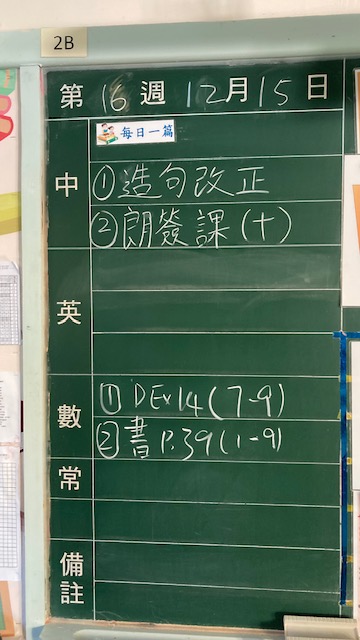 2B
第 16 週 12月15日
每日一篇
中
①造句改正
②朗簽課(十)
英
數
① DEx14(7-9)
②書P.39(1-9)
常
備註